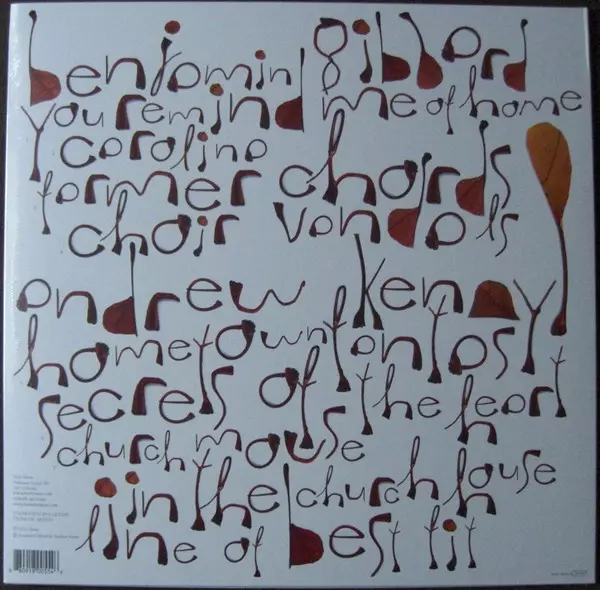 benjamin gibbard
you remind me of home
carolina
farmer chords
choir vandals
andrew kenny
hometown fantasy
secrets of the heart
church mouse
in the church house
line of best fit